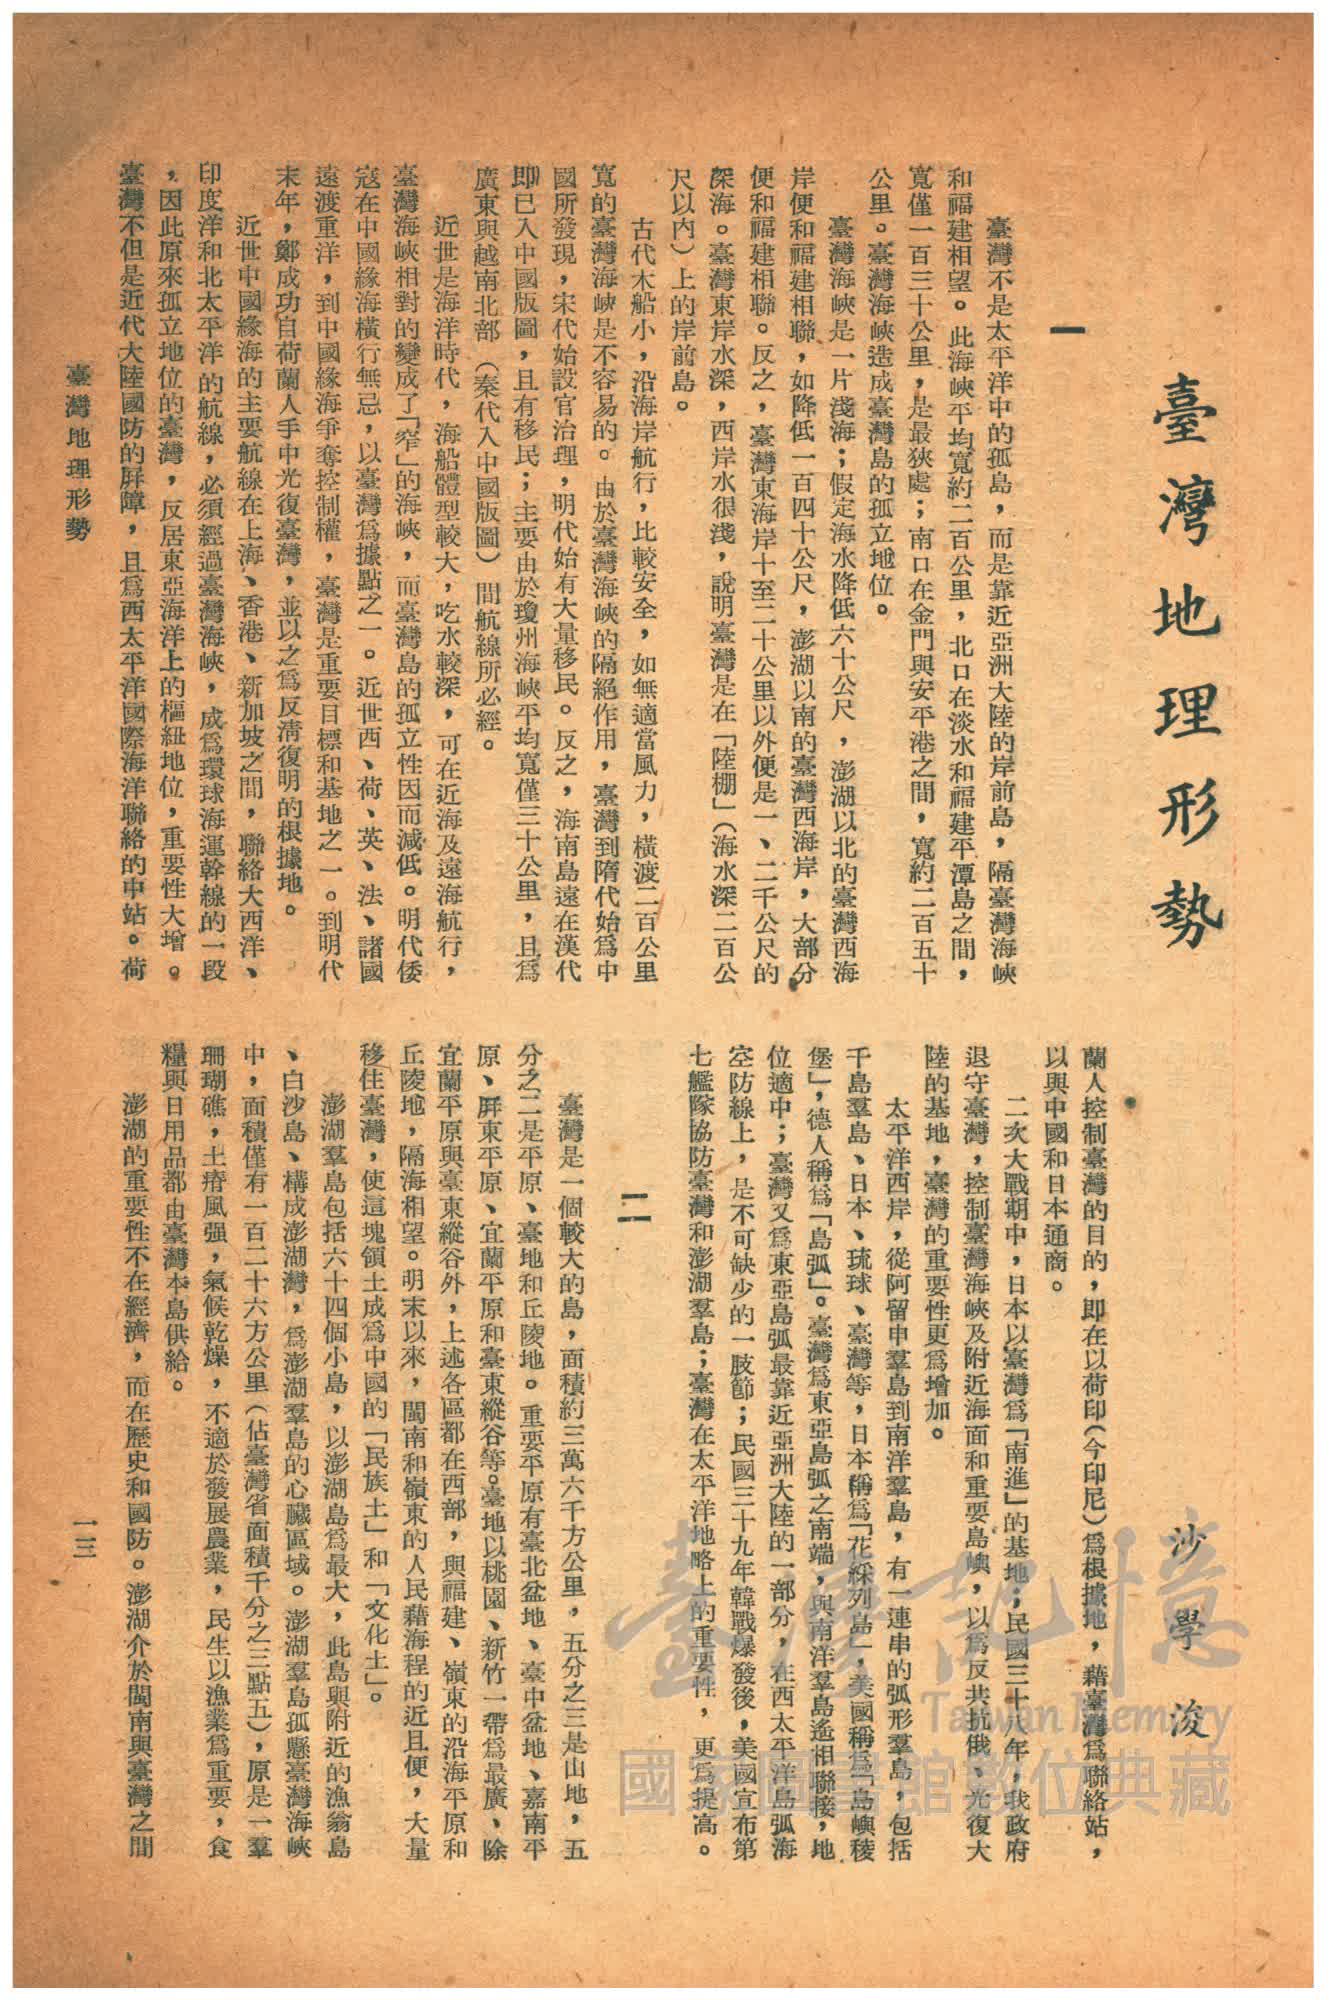 臺灣地理形勢
沙學浚
一
臺灣不是太平洋中的孤島，而是靠近亞洲大陸的岸前島，隔臺灣海峽
和福建相望。此海峽平均寬約二百公里，北口在淡水和福建平潭島之間，
寬僅一百三十公里，是最狹處；南口在金門與安平港之間，寬約二百五十
公里。臺灣海峽造成臺灣島的孤立地位。
臺灣海峽是一片淺海；假定海水降低六十公尺，澎湖以北的臺灣西海
岸便和福建相聯，如降低一百四十公尺，澎湖以南的臺灣西海岸，大部分
便和福建相聯。反之，臺灣東海岸十至二十公里以外便是一、二千公尺的
深海。臺灣東岸水深，西岸水很淺，說明臺灣是在「陸棚」（海水深二百公
尺以內）上的岸前島。
古代木船小，沿海岸航行，比較安全，如無適當風力，橫渡二百公里
寬的臺灣海峽是不容易的。由於臺灣海峽的隔絕作用，臺灣到隋代始為中
國所發現，宋代始設官治理，明代始有大量移民。反之，海南島遠在漢代
即已入中國版圖，且有移民；主要由於瓊州海峽平均寬僅三十公里，且為
廣東與越南北部（秦代入中國版圖）間航線所必經。
近世是海洋時代，海船體型較大，吃水較深，可在近海及遠海航行，
臺灣海峽相對的變成了「窄」的海峽，而臺灣島的孤立性因而減低。明代倭
寇在中國緣海橫行無忌，以臺灣為據點之一。近世西、荷、英、法、諸國
遠渡重洋，到中國緣海爭奪控制權，臺灣是重要目標和基地之一。到明代
末年，鄭成功自荷蘭人手中光復臺灣，並以之為反淸復明的根據地。
近世中國緣海的主要航線在上海、香港、新加坡之間，聯絡大西洋、
印度洋和北太平洋的航線，必須經過臺灣海峽，成為環球海運幹線的一段
，因此原來孤立地位的臺灣，反居東亞海洋上的樞紐地位，重要性大增。
臺灣不但是近代大陸國防的屛障，且為西太平洋國際海洋聯絡的中站。荷
蘭人控制臺灣的目的，即在以荷印（今印尼）為根據地，藉臺灣為聯絡站，
以與中國和日本通商。
二次大戰期中，日本以臺灣為「南進」的基地；民國三十八年，我政府
退守臺灣，控制臺灣海峽及附近海面和重要島嶼，以為反共抗俄、光復大
陸的基地，臺灣的重要性更為增加。
太平洋西岸，從阿留申羣島到南洋羣島，有一連串的弧形羣島，包括
千島羣島、日本、琉球、臺灣等，日本稱為「花綵列島」，美國稱為「島嶼稜
堡」，德人稱為「島弧」。臺灣為東亞島弧之南端，與南洋羣島遙相聯接，地
位適中；臺灣又為東亞島弧最靠近亞洲大陸的一部分，在西太平洋島弧海
空防線上，是不可缺少的一肢節；民國三十九年韓戰爆發後，美國宣布第
七艦隊協防臺灣和澎湖羣島；臺灣在太平洋地略上的重要性，更為提高。
二
臺灣是一個較大的島，面積約三萬六千方公里，五分之三是山地，五
分之二是平原、臺地和丘陵地。重要平原有臺北盆地、臺中盆地、嘉南平
原、屛東平原、宜蘭平原和臺東縱谷等。臺地以桃園、新竹一帶為最廣、除
宜蘭平原與臺東縱谷外，上述各區都在西部，與福建、嶺東的沿海平原和
丘陵地，隔海相望。明末以來，閩南和嶺東的人民藉海程的近且便，大量
移住臺灣，使這塊領土成為中國的「民族土」和「文化土」。
澎湖羣島包括六十四個小島，以澎湖島為最大，此島與附近的漁翁島
、白沙島、構成澎湖灣，為澎湖羣島的心臟區域。澎湖羣島孤懸臺灣海峽
中，面積僅有一百二十六方公里（佔臺灣省面積千分之三點五），原是一羣
珊瑚礁，土瘠風强，氣候乾燥，不適於發展農業，民生以漁業為重要，食
糧與日用品都由臺灣本島供給。
澎湖的重要性不在經濟，而在歷史和國防。澎湖介於閩南與臺灣之間
臺灣地理形勢
一三
臺灣記憶
Taiwan Memory
國家圖書館數位典藏